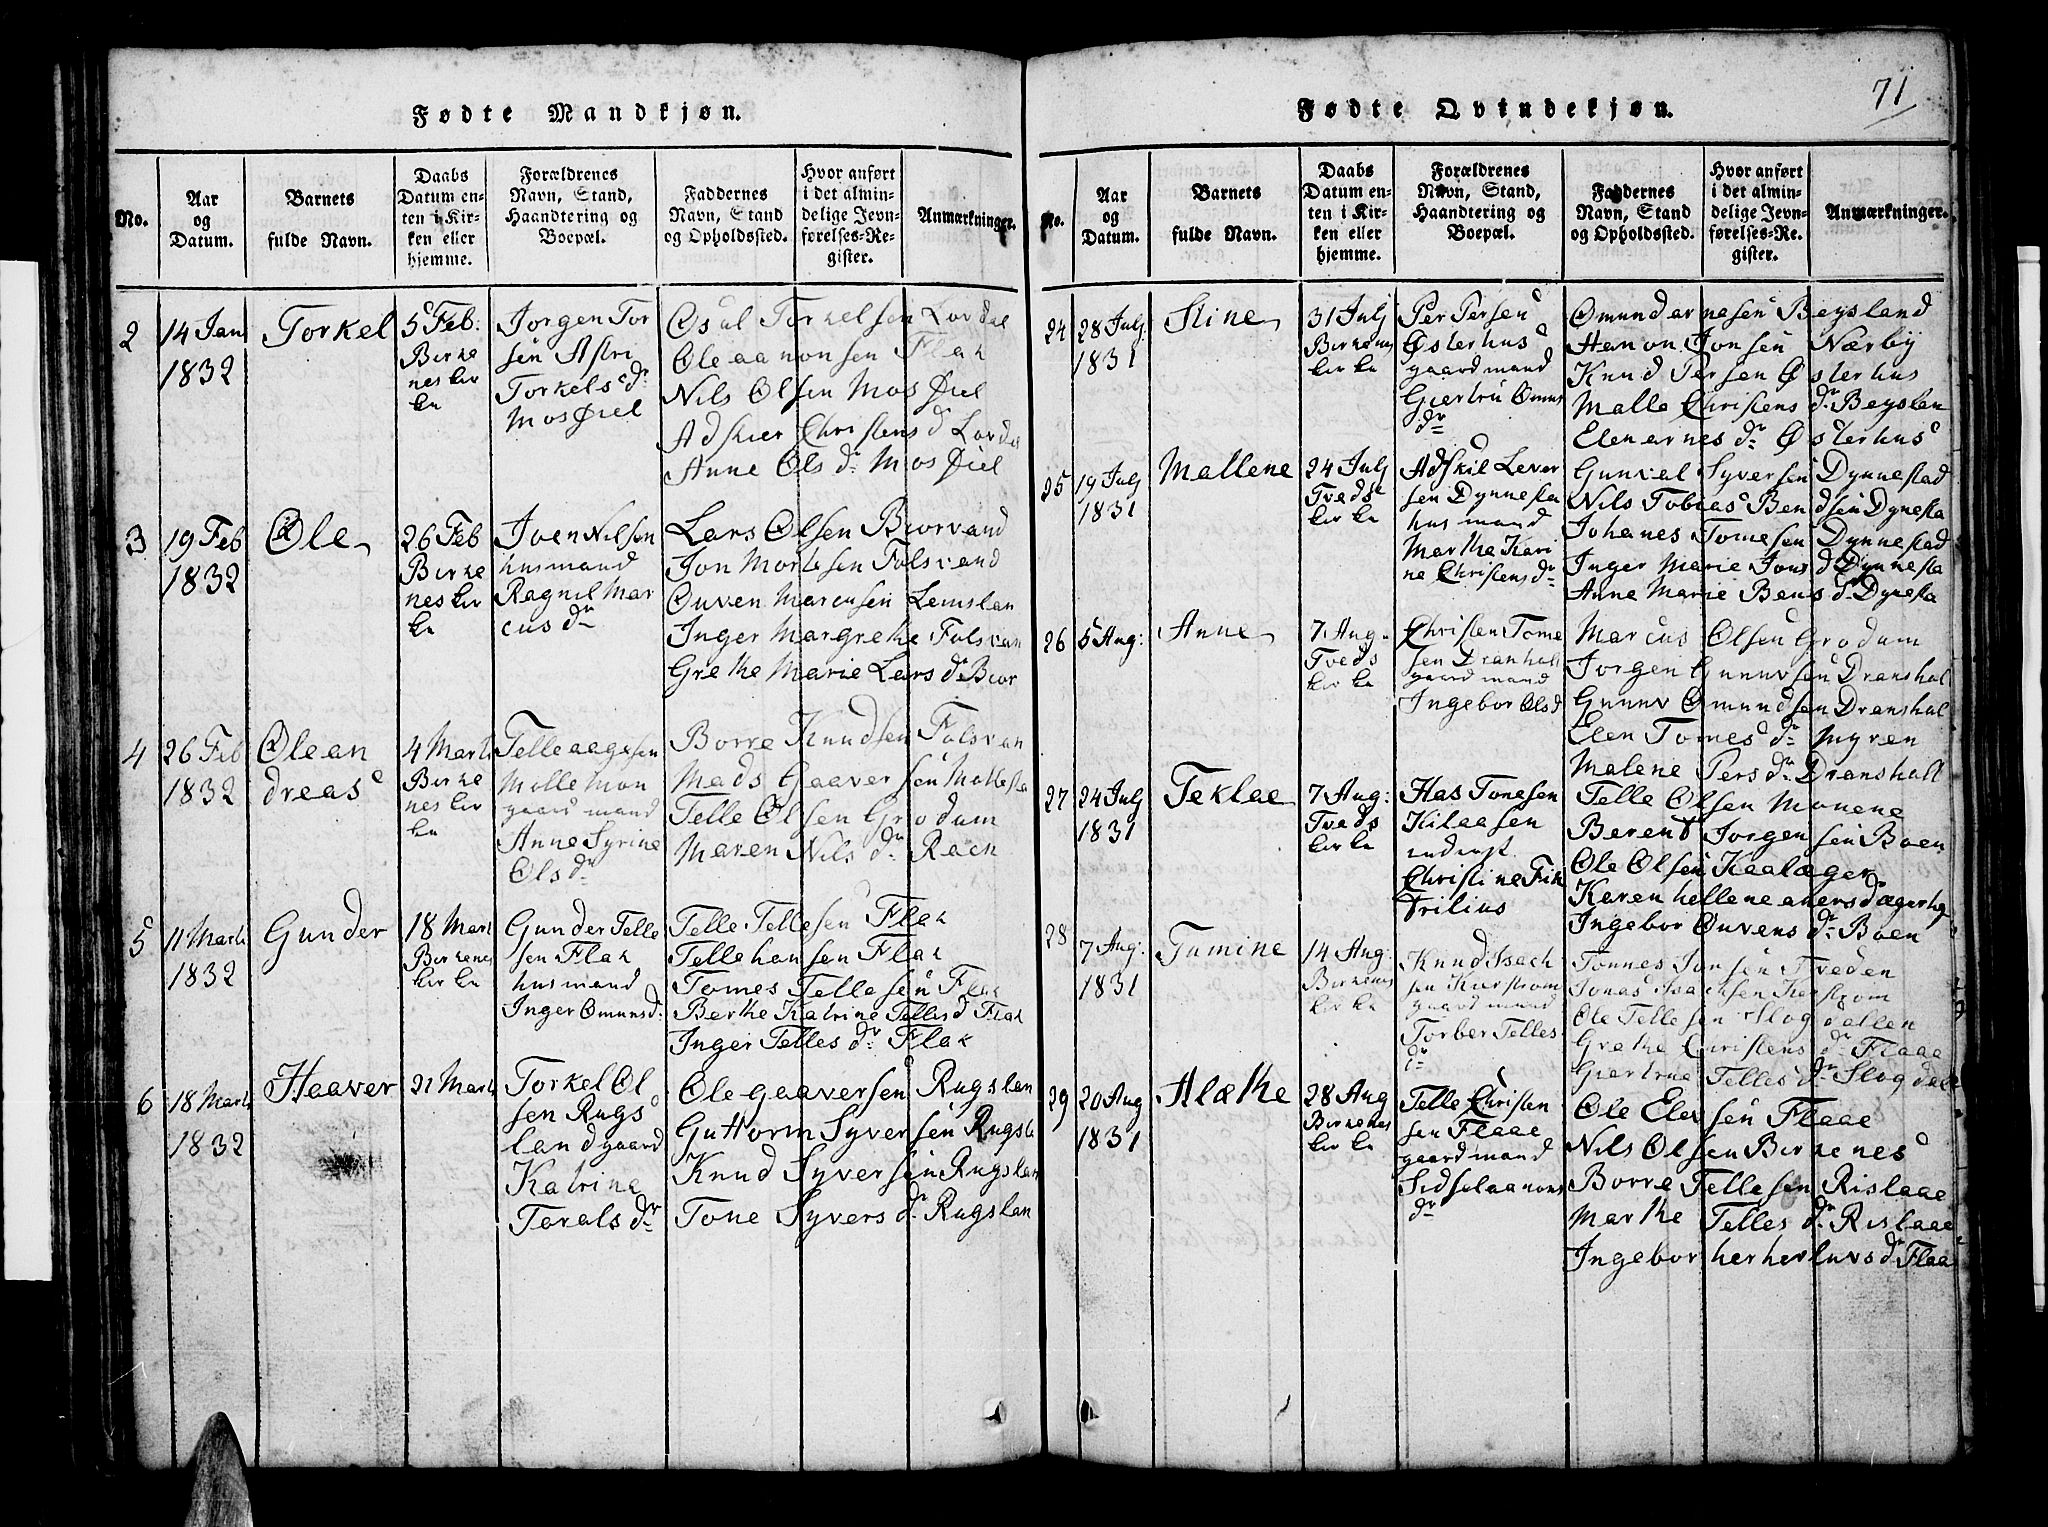 Fødte Mandkjøn.
No.
Aar
og
Datum.
Barnets
fulde Navn.
Daabs
Datum en-
ten i Kir-
ken eller
hjemme.
Forældrenes
Navn, Stand,
Haandtering og
Boepæl.
Faddernes
Navn, Stand
og Opholdssted.
Hvor anført
i det almin-
delige Jevn-
førelses-Re-
gister.
Anmærkninger.
2
14 Jan
1832
Torkel
5 Feb:
Birke
nes kir
ke
Jorgen Tor
sen Astri
Torkels dr
Mosøiel
Osul Torkelsen Lordal
Ole aanonsen Flak
Nils Olsen Mosøiel
Adskier Christens d Lordal
Anne Ols dr Mosøiel
3
19 Feb
1832
Ole
26 Feb
Birke
nes kir
ke
Joen Nilsen
husmand
Ragnil Mar
cus dr
Lars Olsen Biorvand
Jon Mortesen Folsvand
Ouven Marcusen Lemslan
Inger Margrethe Folsvan
Grethe Marie Lars dr Bior
4
26 Feb
1832
Olean
dreas
4 Marti
Birke
nes kir
ke
Telle aagesen
Mollemon
gaard mand
Anne Syrine
Ols dr
Borre Knudsen Folsvan
Mads Gaaversen Mollesta
Telle Olsen Grodum
Maren Nils dr Raen
5
11 Marti
1832
Gunder
18 Mart
Birkenes
kir ke
Gunder Telle
sen Flak
husmand
Inger Omuns d:
Telle Tellesen Flak
Telle hansen Flak
Tomes Tellesen Flak
Berthe Katrine Telles d Flak
Inger Telles dr Flak
6
18 Marti
1832
Haaver
21 Marti
Torkel Ol
sen Rugs
land gaard
Katrine
Torals dr
Ole gaaversen Rugslan
Guttorm Syversen Rugsla
Knud Syversen Rugslan
Tone Syvers dr Rugslan
71
Fødte Qvindekjøn.
No.
Aar
og
Datum.
Barnets
fulde Navn.
Daabs
Datum en-
ten i Kir-
ken eller
hjemme.
Forældrenes
Navn, Stand,
Haandtering og
Boepæl.
Faddernes
Navn, Stand
og Opholdssted.
Hvor anført
i det almin-
delige Jevn-
førelses-Re-
gister.
Anmærkninger.
24
28 July
1831
Stine
31 July
Birkenes
kir ke
Per Persen
Østerhus
gaard mand
Giertru Omuns
dr
Omund arnesen Beysland
Hanon Jonsen Nærby
Knud Persen Østerhus
Malle Christens dr Beyslan
Elen arnes dr Østerhus
25
19 July
1831
Mallene
24 July
Tveds
kir ke
Adskil Lever
sen Dynnesta
husmand
Marthe Kari
ne Christens dr
Gunvel Syversen Dynnestad
Nils Tobias Bendsen Dynesta
Johanes Tomesen Dynnestad
Inger Marie Jons d Dynnesta
Anne Marie Bens dr Dynesta
26
5 Aug:
Anne
7 Aug
Tveds
kir ke
Christen Tome
sen Dranholt
gaard mand
Ingebor Ols d
Marcus Olsen Grodum
Jorgen Gunuvsen Dranshol
Gunuv Omundsen Dranshol
Elen Tomes dr Myren
Malene Pers dr Dransholt
27
24 July
1831
Teklae
7 Aug:
Tveds
kir ke
Has Tonesen
Kilaasen
inderst
Christine Fik
trilius
Telle Olsen Monene
Berent Jorgensen Boen
Ole Olsen Kaalager
Karen hellene aners d ægerhe
Ingebor Ouvens dr Boen
28
7 Aug:
1831
Tumine
14 Aug:
Birkenes
kir ke
Knud Isach
sen Kierstrom
gaard mand
Torber Telles
dr
Tonnes Jonsen Treden
Jonas Isachsen Kerstrom
Ole Tellesen Slogdallen
Grethe Christens dr Flaae
Giertrue Telles dr Slogdal
29
20 Aug
1831
Alæthe
28 Aug
Birkenes
kir ke
Telle Christen
sen Flaae
gaard mand
Sidsel aanons
dr
Ole Elevsen Flaae
Nils Olsen Birkenes
Borre Tellesen Rislaae
Marthe Telles dr Rislaae
Ingebor herherluvs dr Flaa